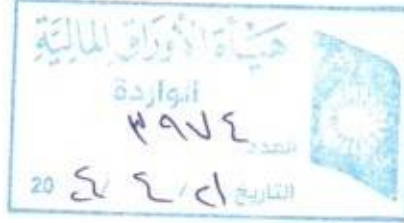 هيأة الأوراق المالية
الواردة
العدد ٣٩٧٤
التاريخ ٢١/٤/٢٤ 20